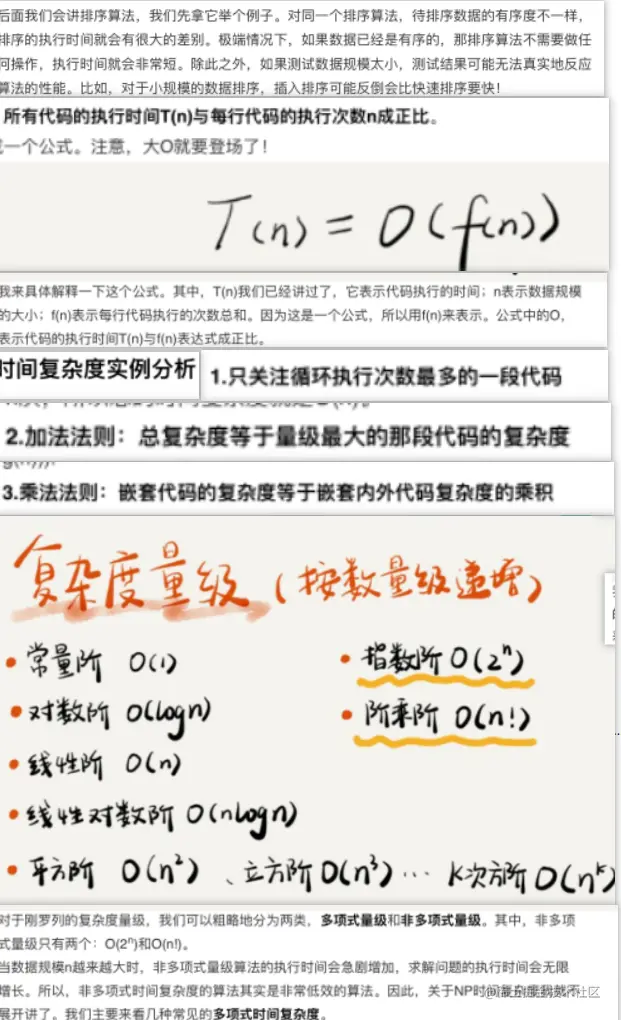 后面我们会讲排序算法，我们先拿它举个例子。对同一个排序算法，待排序数据的有序度不一样，
排序的执行时间就会有很大的差别。极端情况下，如果数据已经是有序的，那排序算法不需要做任
何操作，执行时间就会非常短。除此之外，如果测试数据规模太小，测试结果可能无法真实地反应
算法的性能。比如，对于小规模的数据排序，插入排序可能反倒会比快速排序要快！
所有代码的执行时间T(n)与每行代码的执行次数n成正比。
成一个公式。注意，大O就要登场了！
T(n) = O(f(n))
我来具体解释一下这个公式。其中，T(n)我们已经讲过了，它表示代码执行的时间；n表示数据规模
的大小；f(n)表示每行代码执行的次数总和。因为这是一个公式，所以用f(n)来表示。公式中的O，
表示代码的执行时间T(n)与f(n)表达式成正比。
时间复杂度实例分析
1.只关注循环执行次数最多的一段代码
2.加法法则：总复杂度等于量级最大的那段代码的复杂度
3.乘法法则：嵌套代码的复杂度等于嵌套内外代码复杂度的乘积
复杂度量级（按数量级递增）
• 常量阶 O(1)
• 对数阶 O(logn)
• 线性阶 O(n)
• 线性对数阶 O(nlogn)
• 平方阶 O(n²)、立方阶 O(n³)… K次方阶 O(nᵏ)
• 指数阶 O(2ⁿ)
• 阶乘阶 O(n!)
对于刚罗列的复杂度量级，我们可以粗略地分为两类，多项式量级和非多项式量级。其中，非多项
式量级只有两个：O(2ⁿ)和O(n!)。
当数据规模n越来越大时，非多项式量级算法的执行时间会急剧增加，求解问题的执行时间会无限
增长。所以，非多项式时间复杂度的算法其实是非常低效的算法。因此，关于NP时间复杂度我就不
展开讲了。我们主要来看几种常见的多项式时间复杂度。